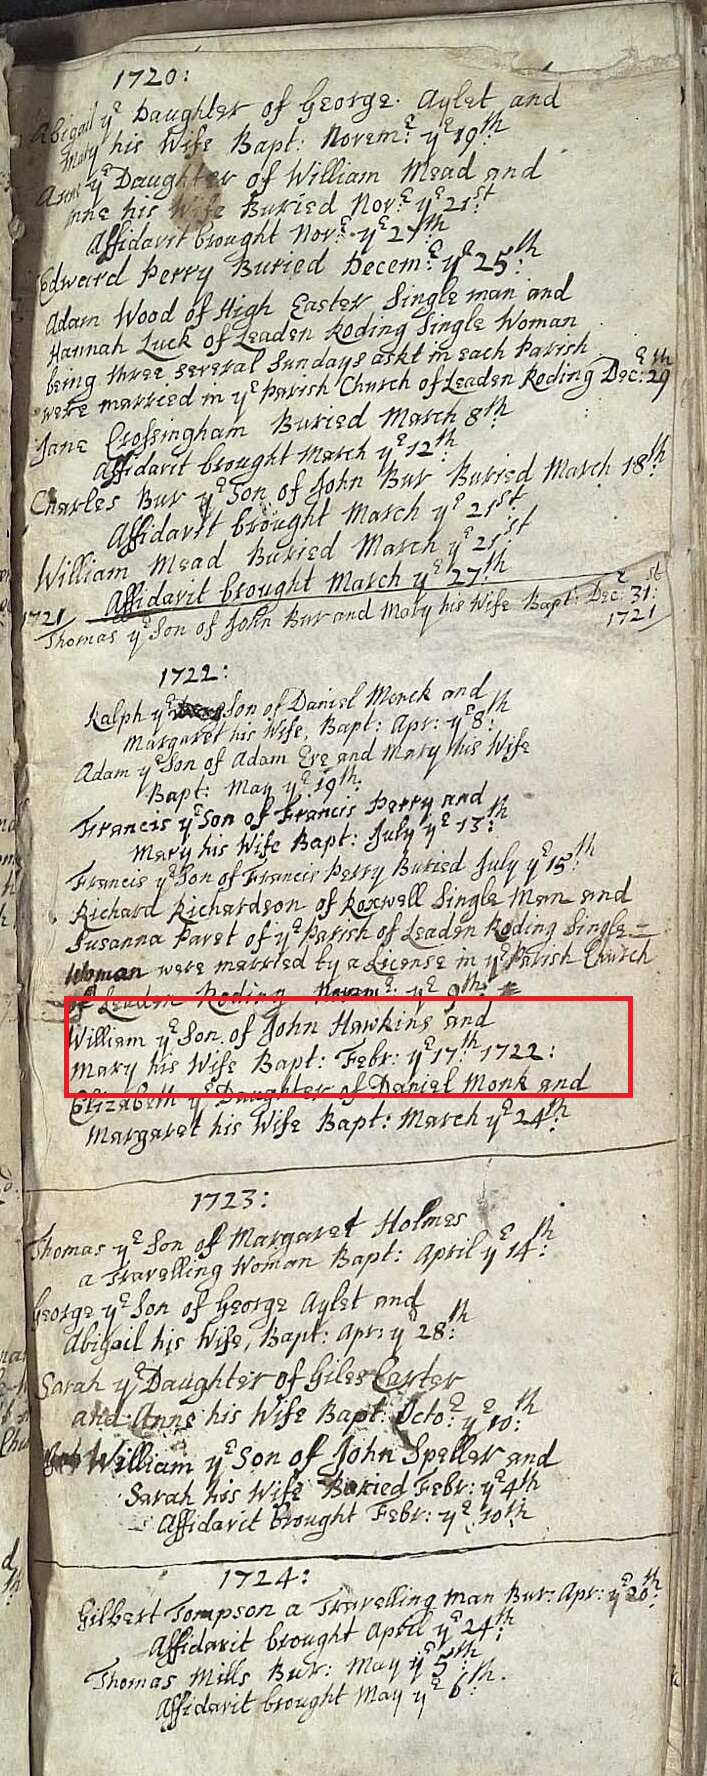 1720:
Abigail yᵉ Daughter of George Aylet and
Mary his Wife Bapt: Novemᵉ: yᵉ 19th
Anne yᵉ Daughter of William Mead and
Anne his Wife Buried Novᵉ: yᵉ 21st
Affidavit brought Novᵉ: yᵉ 27th
Edward Perry Buried Decemᵉ: yᵉ 25th:
Adam Wood of High Easter Single man and
Hannah Luck of Leaden Roding Single Woman
being three several Sundays askt in each Parish
were married in yᵉ Parish Church of Leaden Roding Decᵉ: 29th
Jane Crossingham Buried March 8th
Affidavit brought March yᵉ 12th:
Charles Bur yᵉ Son of John Bur Buried March 18th:
Affidavit brought March yᵉ 21st:
William Mead Buried March yᵉ 21st:
Affidavit brought March yᵉ 27th:
1721/ Thomas yᵉ Son of John Bur and Mary his Wife Bapt: Decᵉ: 31st:
1721/
1722:
Ralph yᵉ Son of Daniel Monck and
Margaret his Wife, Bapt: Apr: yᵉ 8th:
Adam yᵉ Son of Adam Eve and Mary his Wife
Bapt: May yᵉ 19th:
Francis yᵉ Son of Francis Perry and
Mary his Wife Bapt: July yᵉ 13th:
Francis yᵉ Son of Francis Perry Buried July yᵉ 15th:
Richard Richardson of Roxwell Single Man and
Susanna Pavet of yᵉ Parish of Leaden Roding Single=
Woman were married by a License in yᵉ Parish Church
of Leaden Roding Novemᵉ: yᵉ 9th:
William yᵉ Son of John Hawkins and
Mary his Wife Bapt: Febr: yᵉ 17th: 1722:
Elizabeth yᵉ Daughter of Daniel Monk and
Margaret his Wife Bapt: March yᵉ 24th:
1723:
Thomas yᵉ Son of Margaret Holmes
a Travelling Woman Bapt: April yᵉ 14th:
George yᵉ Son of George Aylet and
Abigail his Wife, Bapt: Apr: yᵉ 28th:
Sarah yᵉ Daughter of Giles Carter
and Anne his Wife Bapt: Octoᵉ: yᵉ 10th:
William yᵉ Son of John Speller and
Sarah his Wife Buried Febr: yᵉ 4th
Affidavit brought Febr: yᵉ 10th:
1724:
Gilbert Tompson a Travelling man Bur: Apr: yᵉ 20th:
Affidavit brought April yᵉ 24th:
Thomas Mills Bur: May yᵉ 5th:
Affidavit brought May yᵉ 6th.